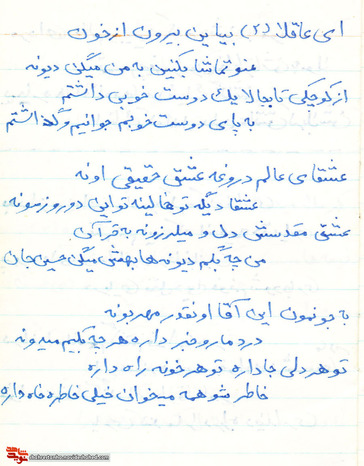 ای عاقلا (۲) بیایین بیرون از خون
منو تماشا بکنین به من میگن دیونه
از کوچکی تا بحالا یک دوست خوبی داشتم
به پای دوست خوبم جوانیم و گذاشتم
عشقای عالم دروغه عشق حقیقی اونه
عشقا دیگه توخالینه تو این دو روز مونه
عشق مقدسش دل و میلرزونه به قرآن
من چه بگم دیونه ها بهش میگن حسین جان
به جونمون این آقا اونقدر مهربونه
درد مارو خبر داره هر چه بگیم میدونه
تو هر دلی جا داره تو هر خونه راه داره
خاطرشو همه میخوان خیلی خاطره خاه داره
shohrestanha.navideshahed.com